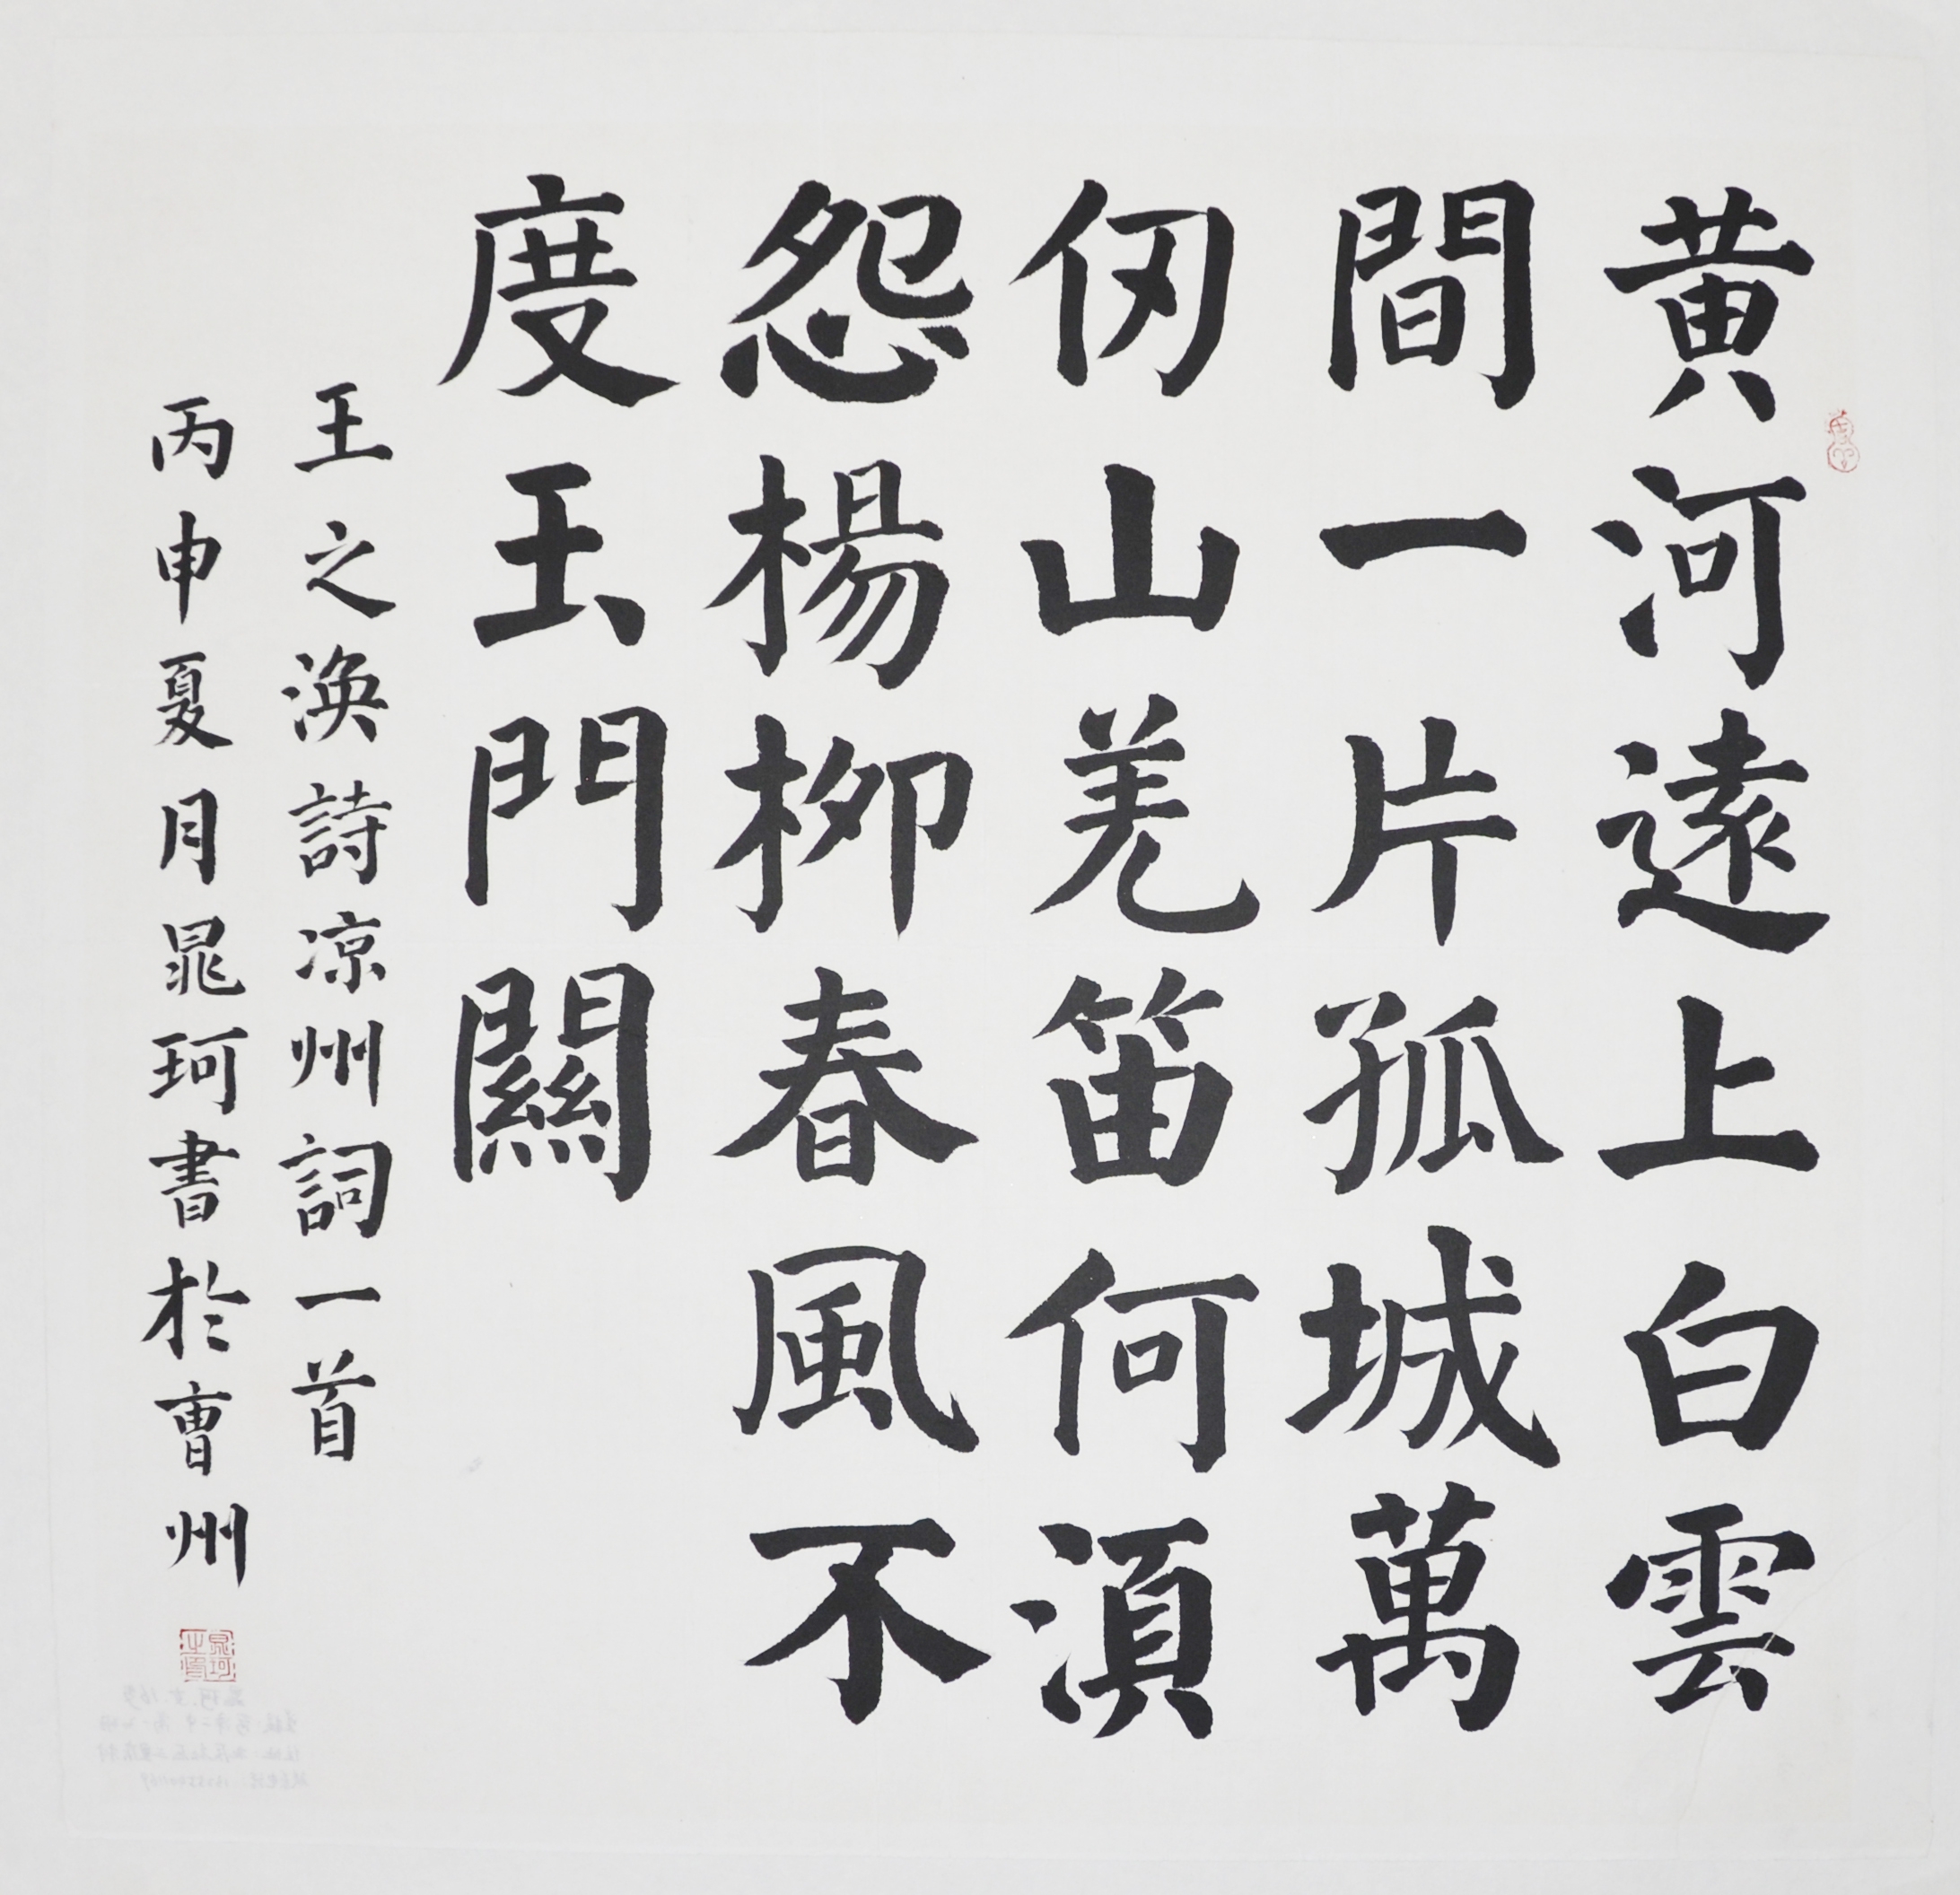 黄河遠上白雲
間一片孤城萬
仞山羌笛何湏
怨楊柳春風不
度玉門關
王之渙詩凉州詞一首
丙申夏月晁珂書於曹州